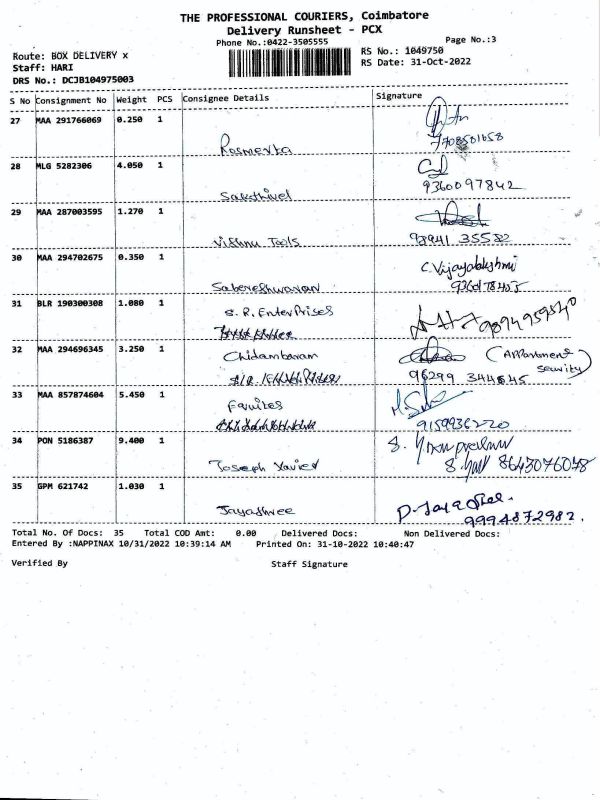 THE PROFESSIONAL COURIERS, Coimbatore
Delivery Runsheet - PCX
Phone No.:0422-3505555
Page No.:3
Route: BOX DELIVERY x
RS No.: 1049750
Staff: HARI
RS Date: 31-Oct-2022
DRS No.: DCJB104975003
S No Consignment No Weight PCS Consignee Details Signature
27 MAA 291766069 0.250 1
28 MLG 5282306 4.050 1
Sakthivel 9360097842
29 MAA 287003595 1.270 1
Vishnu Tools 98941 35582
30 MAA 294702675 0.350 1 C. Vijayalakshmi
Sabareshwaran
31 BLR 190300308 1.080 1 S. R. Enterprises
32 MAA 294696345 3.250 1 Chidambaram (Appartment
security)
96299 344645
33 MAA 857874604 5.450 1
9159936220
34 PON 5186387 9.400 1
Joseph Xavier 8643076078
35 GPM 621742 1.030 1
Jayashree 9994872982.
Total No. Of Docs: 35 Total COD Amt: 0.00 Delivered Docs: Non Delivered Docs:
Entered By :NAPPINAX 10/31/2022 10:39:14 AM Printed On: 31-10-2022 10:40:47
Verified By Staff Signature